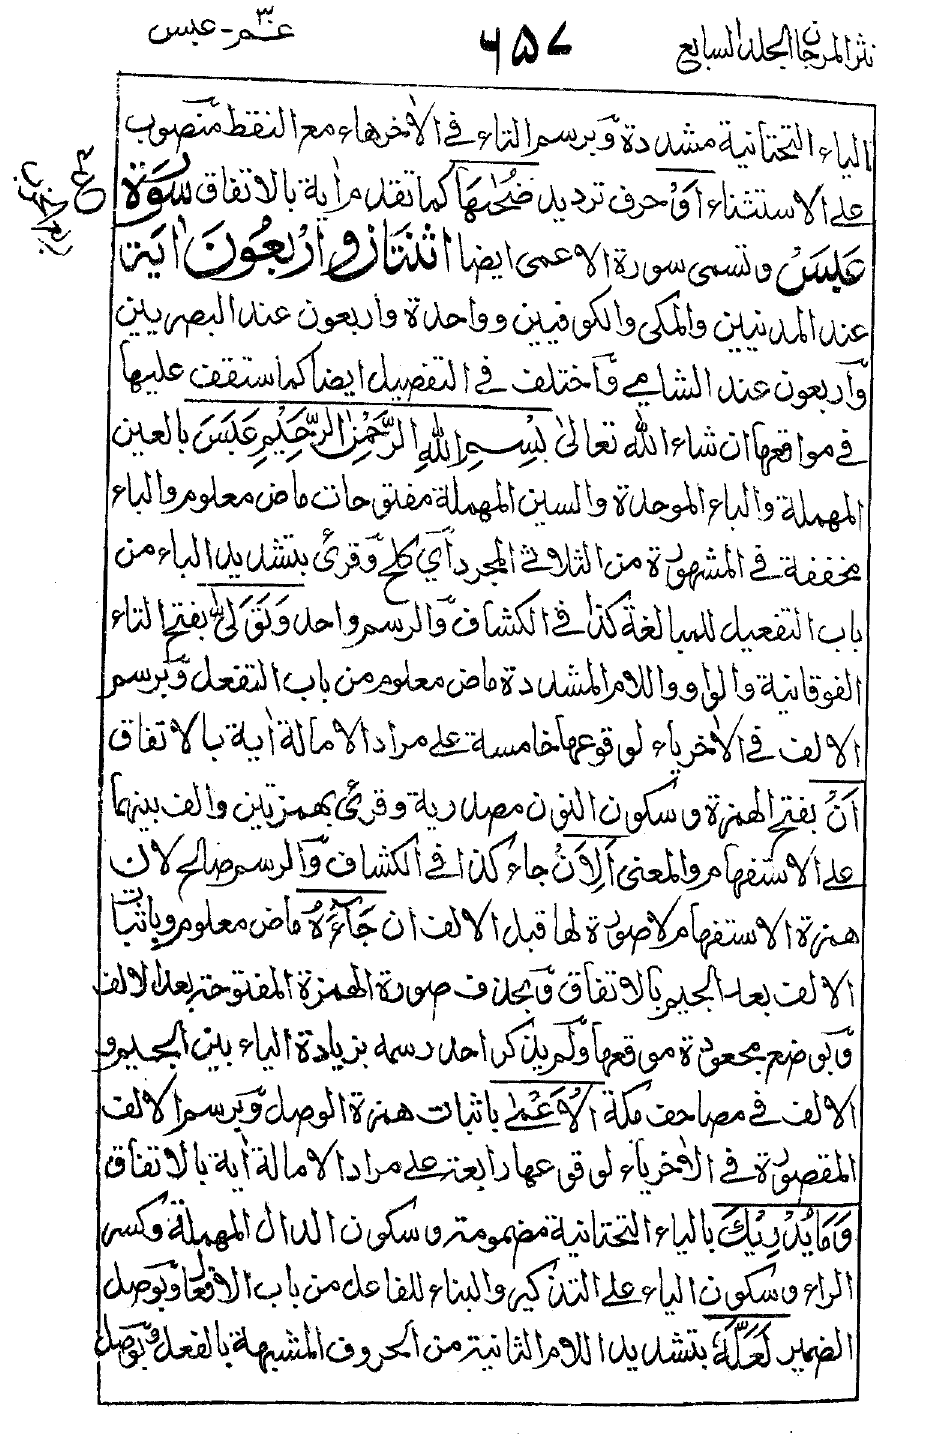 نثر المرجان الجلد السابع
٦٥٧
عـم - عبس
الياء التحتانية مشددة وبرسم التاء في الاٰخر هاء مع النقط منصوب
على الاستثناء اَوْ حرف ترديد ضُحٰىهَا كما تقدم اٰية بالاتفاق سُوۡرَةُ
عَبَسَ وتسمى سورة الاعمى ايضا اثْنَتَانِ وَاَرْبَعُونَ اٰيَة
عند المدنيين والمكى والكوفيين وواحدة واربعون عند البصريين
وَاربعون عند الشامى وَاختلف فى التفصيل ايضا كما ستقف عليها
فى مواقعها ان شاء الله تعالىٰ بِسْمِ اللّٰهِ الرَّحْمٰنِ الرَّحِيْمِ عَبَسَ بالعين
المهملة والباء الموحدة والسين المهملة مفتوحات ماض معلوم والباء
مخففة فى المشهورة من الثلاثى المجرد اَى كلح وَقرئ بتشديد الباء من
باب التفعيل للمبالغة كذا فى الكشاف وَالرسم واحد وَتَوَلّٰى بفتح التاء
الفوقانية والواو واللام المشددة ماض معلوم من باب التفعل وَبرسم
الالف فى الاٰخر ياء لوقوعها خامسة على مراد الامالة اٰية بالاتفاق
اَنْ بفتح الهمزة وسكون النون مصدرية وقرئ بهمزتين والف بينهما
على الاستفهام والمعنى اَلِاَنْ جاء كذا فى الكشاف وَالرسم صالح لان
همزة الاستفهام لا صورة لها قبل الالف ان جَآءَهُ ماض معلوم وباثبات
الالف بعد الجيم بالاتفاق وَبحذف صورة الهمزة المفتوحة بعد الالف
وَبوضع مجعودة موقعها وَلم يذكر احد رسمه بزيادة الياء بين الجيم و
الالف فى مصاحف مكة الْاَعْمٰى باثبات همزة الوصل وَبرسم الالف
المقصورة فى الاٰخر ياء لوقوعها رابعة على مراد الامالة اٰية بالاتفاق
وَمَا يُدْرِيْكَ بالياء التحتانية مضمومة وسكون الدال المهملة وكسر
الراء وسكون الياء على التذكير والبناء للفاعل من باب الافعال وَبوصل
الضمير لَعَلَّهٗ بتشديد اللام الثانية من الحروف المشبهة بالفعل وَبوصل